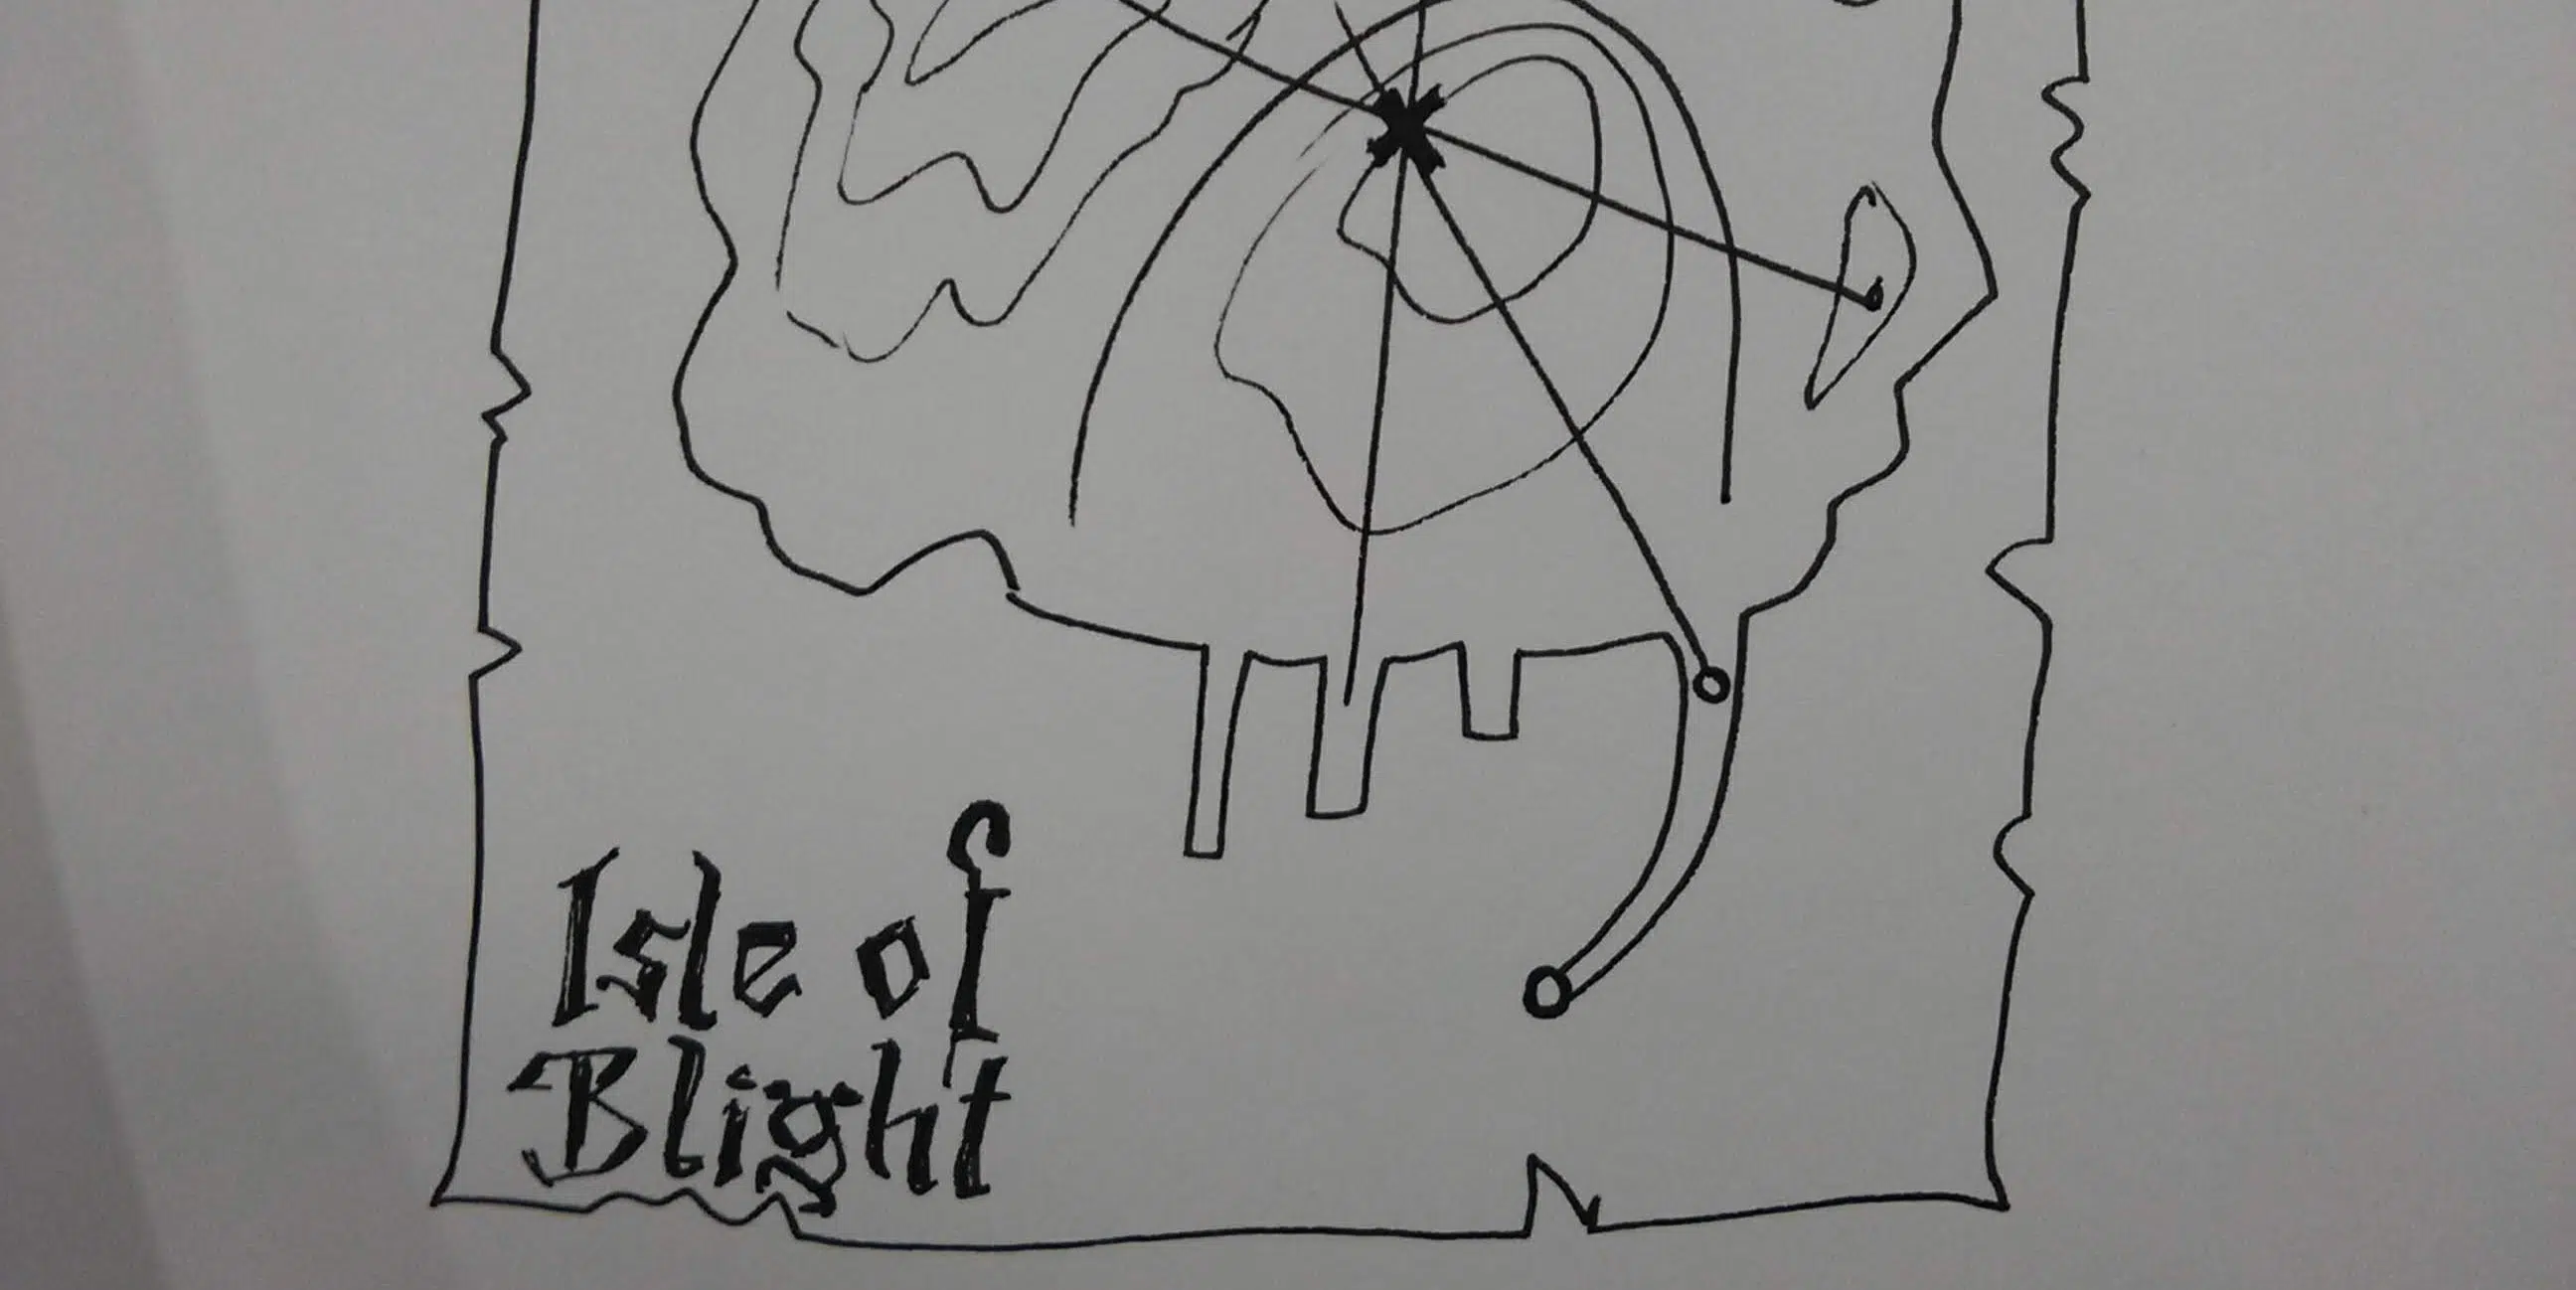 Isle of
Blight